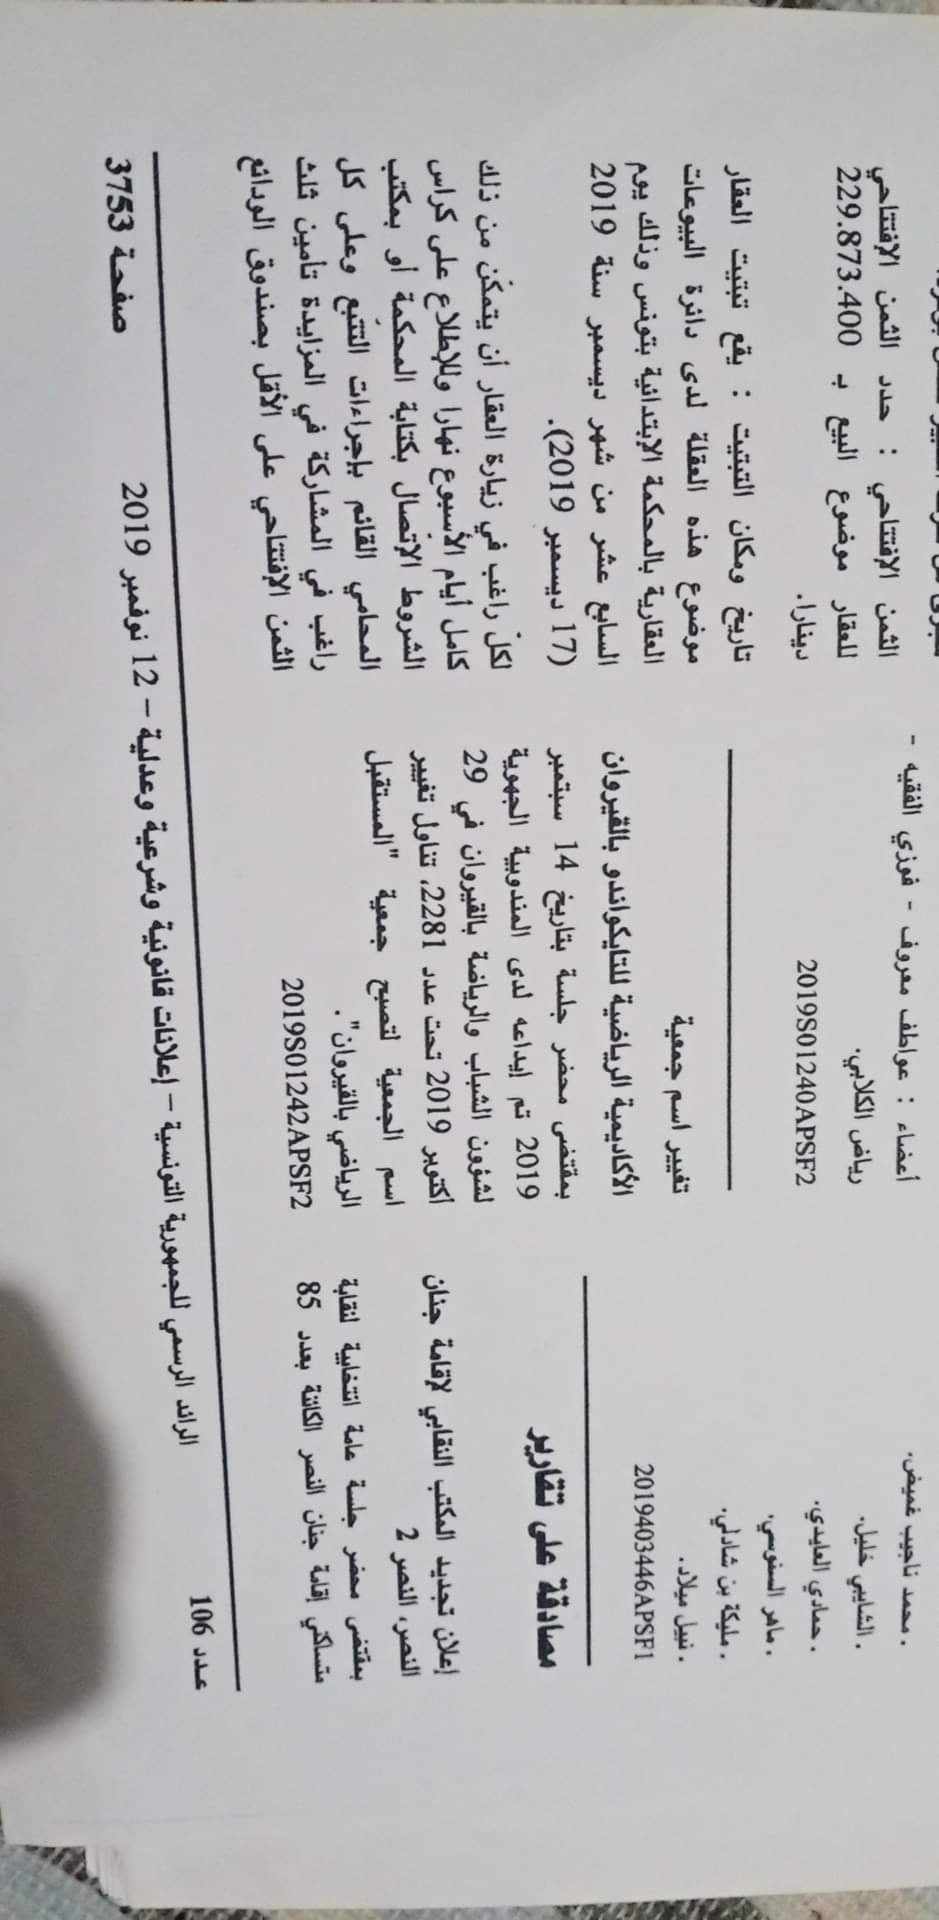 . محمد ناجيب غميض.
. الشايبي خليل.
. حمادي العايدي.
. ماهر السنوسي.
. مليكة بن شادلي.
. نبيل ميلاد.
2019403446APSF1
مصادقة على تقارير
إعلان تجديد المكتب النقابي لإقامة جنان
النصر، النصر 2
بمقتضى محضر جلسة عامة انتخابية لنقابة
متساكني إقامة جنان النصر الكائنة بعدد 85
أعضاء : عواطف معروف - فوزي الفقيه -
رياض الكلابي.
2019S01240APSF2
تغيير اسم جمعية
الأكاديمية الرياضية للتايكواندو بالقيروان
بمقتضى محضر جلسة بتاريخ 14 سبتمبر
2019 تم إيداعه لدى المندوبية الجهوية
لشؤون الشباب والرياضة بالقيروان في 29
أكتوبر 2019 تحت عدد 2281، تناول تغيير
اسم الجمعية لتصبح جمعية "المستقبل
الرياضي بالقيروان".
2019S01242APSF2
الثمن الإفتتاحي : حدد الثمن الإفتتاحي
للعقار موضوع البيع بـ 229.873.400
دينارا.
تاريخ ومكان التبتيت : يقع تبتيت العقار
موضوع هذه العقلة لدى دائرة البيوعات
العقارية بالمحكمة الإبتدائية بتونس وذلك يوم
السابع عشر من شهر ديسمبر سنة 2019
(17 ديسمبر 2019).
لكلّ راغب في زيارة العقار أن يتمكّن من ذلك
كامل أيام الأسبوع نهارا وللإطلاع على كراس
الشروط الإتصال بكتابة المحكمة أو بمكتب
المحامي القائم بإجراءات التتبع وعلى كل
راغب في المشاركة في المزايدة تأمين ثلث
الثمن الإفتتاحي على الأقل بصندوق الودائع
عدد 106
الرائد الرسمي للجمهورية التونسية – إعلانات قانونية وشرعية وعدلية – 12 نوفمبر 2019
صفحة 3753